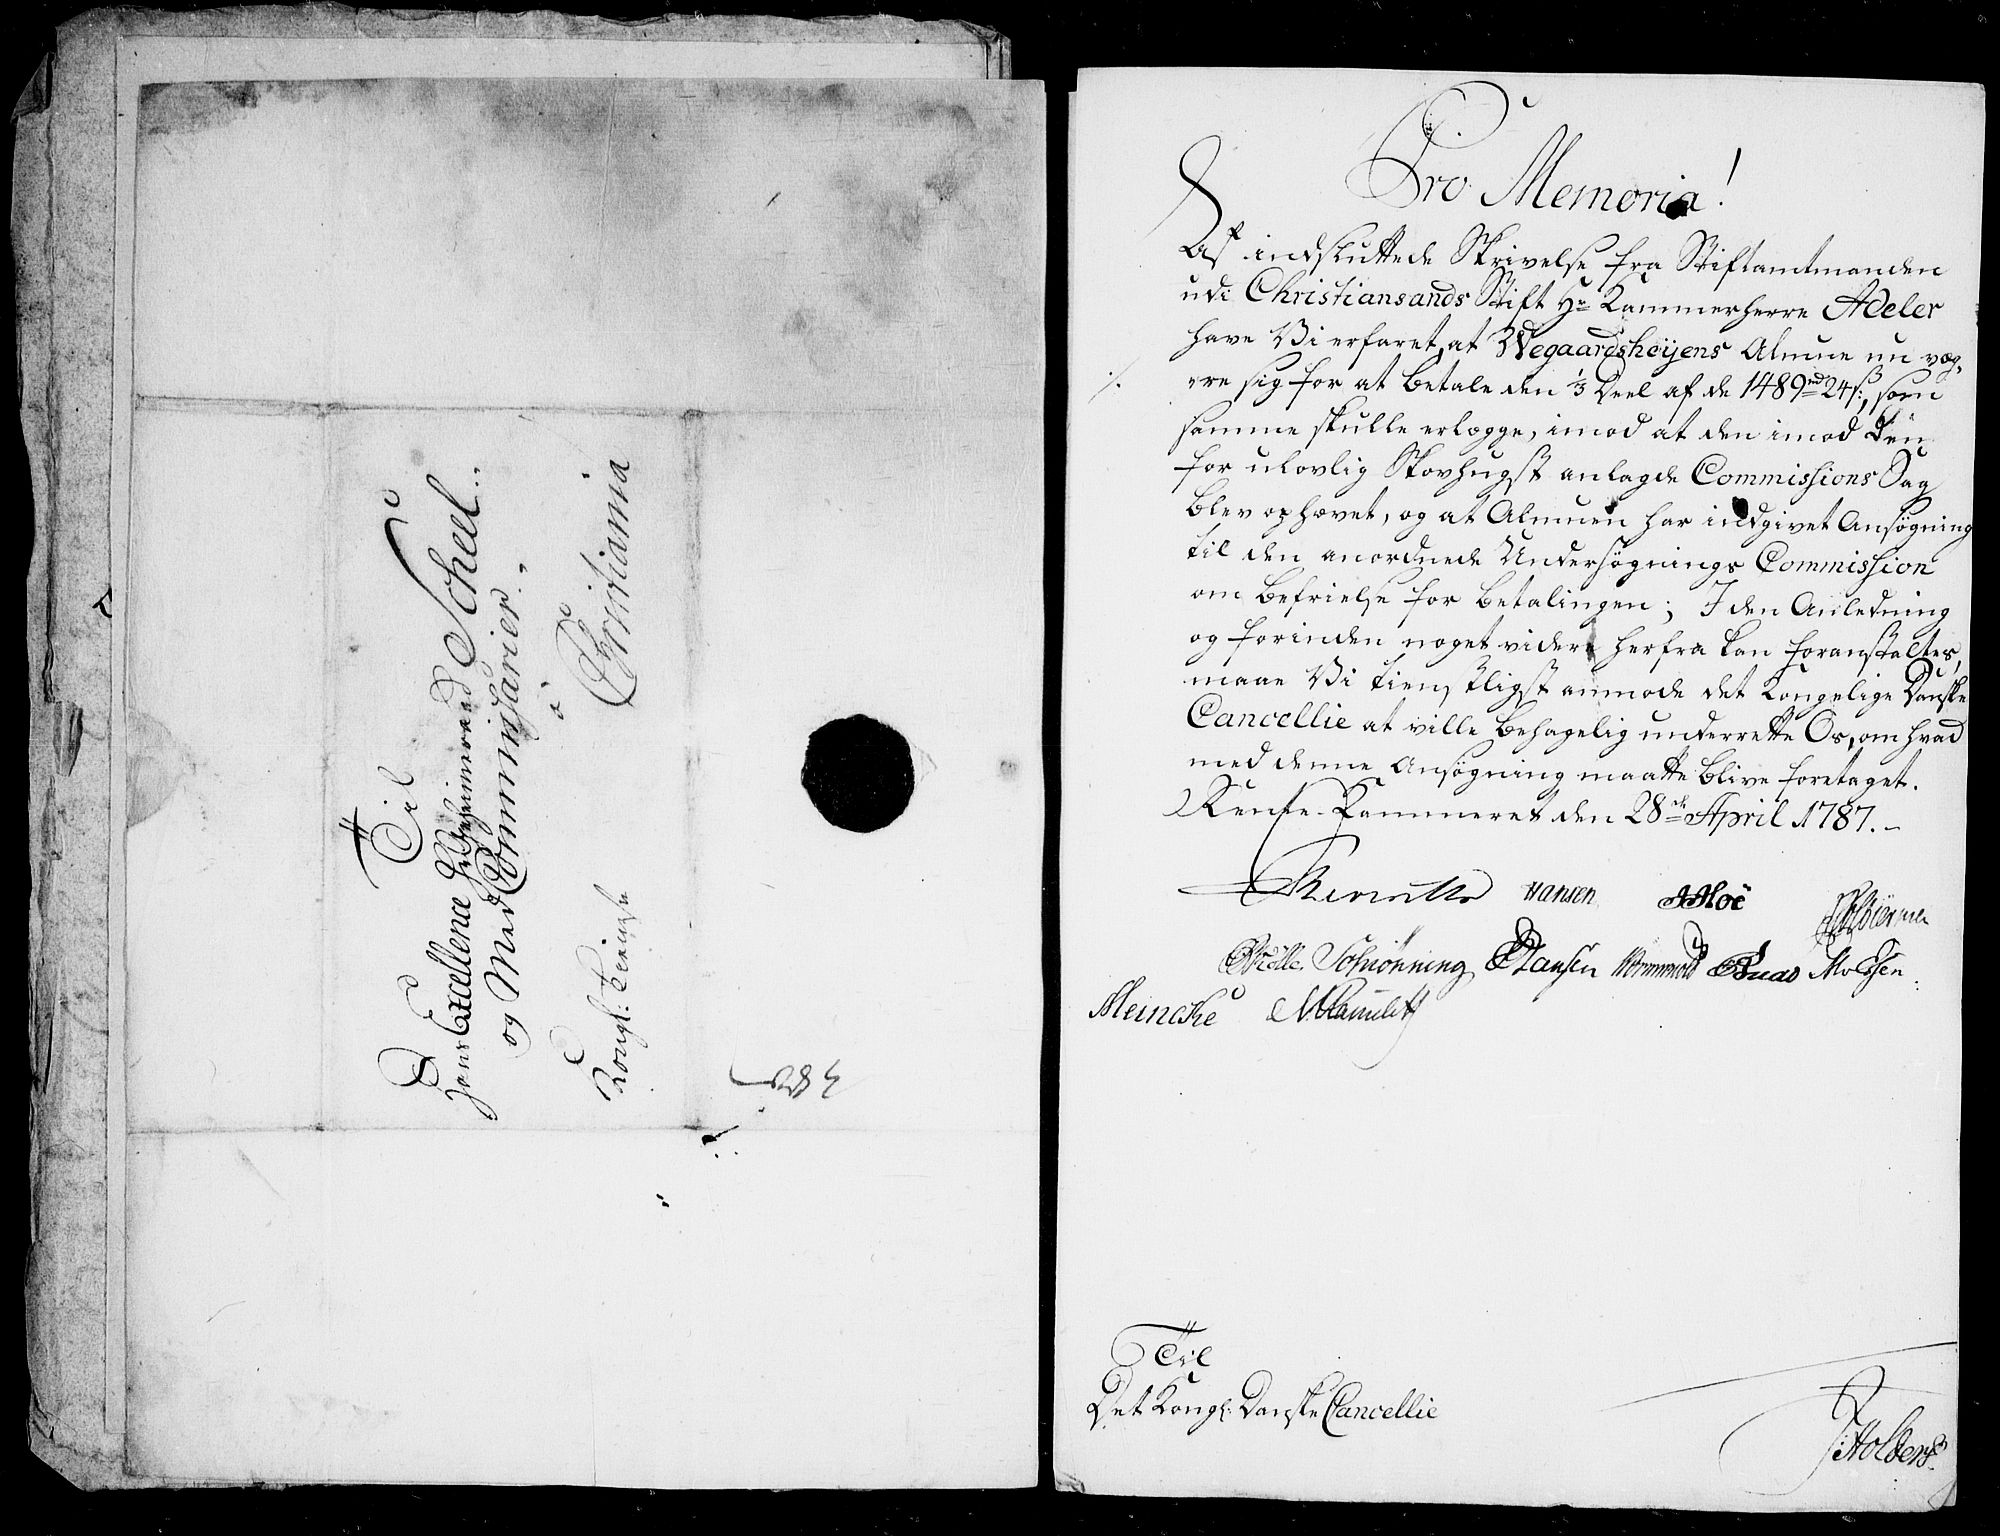 Til
Hans Excellence Hr Geheimeraad Scheel
og Med Commissarier
à
Christiania
Kongl: Tieneste
Pro Memoria!
Af indsluttede Skrivelse fra Stiftamtmanden
udi Christiansands Stift Hr Kammerherre Adeler
have Vi erfaret, at Wegaardsheijens Almue nu væg-
re sig for at betale den 1/3 Deel af de 1489 rd 24 s:, som
samme skulle erlægge, imod at den imod den
for ulovlig Skovhugst anlagde Commissions Sag
blev ophævet, og at Almuen har indgivet Ansøgning
til den anordnede Undersøgnings Commission
om befrielse for betalingen; I den Anledning
og forinden noget videre herfra kan foranstaltes,
maae Vi tienstligst anmode det Kongelige Danske
Cancellie at ville behagelig underrette Os, om hvad
med denne Ansøgning maatte blive foretaget.
Rente-Kammeret den 28de April 1787.
Hansen
Schiønning Hansen
Meincke
Til
Det Kongl: Danske Cancellie